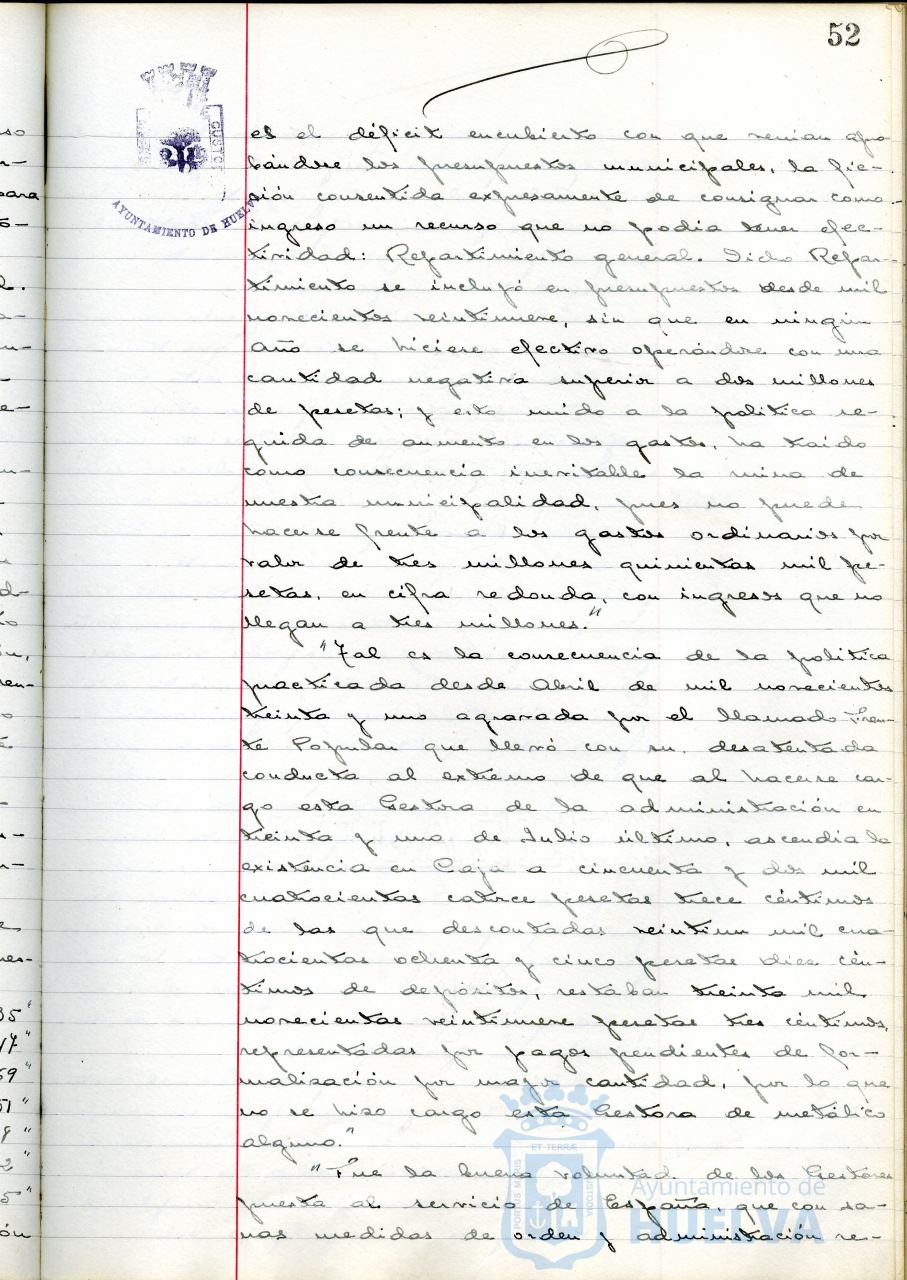 52
AYUNTAMIENTO DE HUELVA
es el déficit encubierto con que venian apro
bándose los presupuestos municipales, la fic-
sión consentida expresamente de consignar como
ingreso un recurso que no podia tener efec-
tividad: Repartimiento general. Dicho Repar-
timiento se incluyó en presupuestos desde mil
novecientos veintinueve, sin que en ningún
año se hiciese efectivo operándose con una
cantidad negativa superior a dos millones
de pesetas; y esto unido a la politica se-
guida de aumento en los gastos, ha traido
como consecuencia inevitable la ruina de
nuestra municipalidad, pues no puede
hacerse frente a los gastos ordinarios por
valor de tres millones quinientas mil pe-
setas, en cifra redonda, con ingresos que no
llegan a tres millones."
"Tal es la consecuencia de la politica
practicada desde Abril de mil novecientos
treinta y uno agravada por el llamado Fren-
te Popular que llevó con su desatentada
conducta al extremo de que al hacerse car-
go esta Gestora de la administración en
treinta y uno de Julio último, ascendia la
existencia en Caja a cincuenta y dos mil
cuatrocientas catorce pesetas trece céntimos
de las que descontadas veintiun mil cua-
trocientas ochenta y cinco pesetas diez cén-
timos de depósitos, restaban treinta mil
novecientas veintinueve pesetas tres céntimos,
representadas por pagos pendientes de for-
malización por mayor cantidad, por lo que
no se hizo cargo esta Gestora de metálico
alguno."
"Fue la buena voluntad de los Gestores
puesta al servicio de España, que con sa-
nas medidas de orden y administración re-
ET TERRÆ
Ayuntamiento de
HUELVA